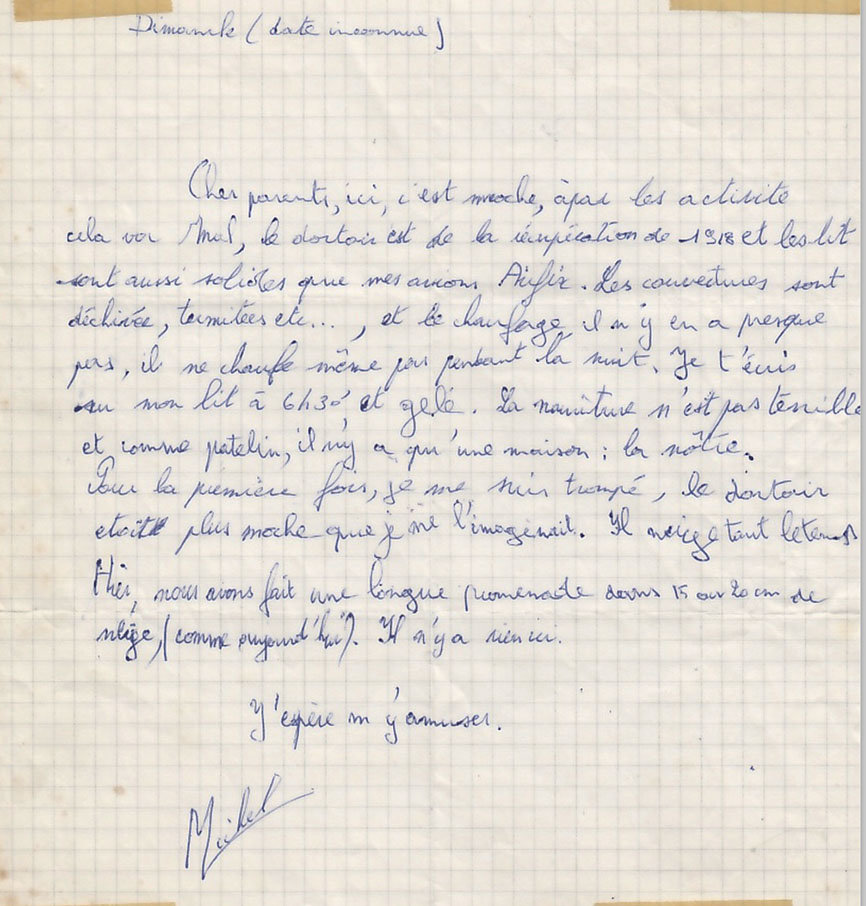 Dimanche (date inconnue)
Cher parents, ici, c'est moche, àpar les activité
cela va Mal, le dortoir est de la récupération de 1918 et les lit
sont aussi solides que mes avions Airfix. Les couvertures sont
déchirée, termitées etc..., et le chaufage, il n'y en a presque
pas, il ne chaufe même pas pendant la nuit. Je t'écris
sur mon lit à 6h30 et gelé. La nourriture n'est pas terrible
et comme patelin, il n'y a qu'une maison : la nôtre.
Pour la première fois, je me suis trompé, le dortoir
etait plus moche que je me l'imaginait. Il neige tout le temps
Hier, nous avons fait une longue promenade dans 15 ou 20 cm de
neige, (comme aujourd'hui). Il n'y a rien ici.
J'espère m'y amuser.
Michel